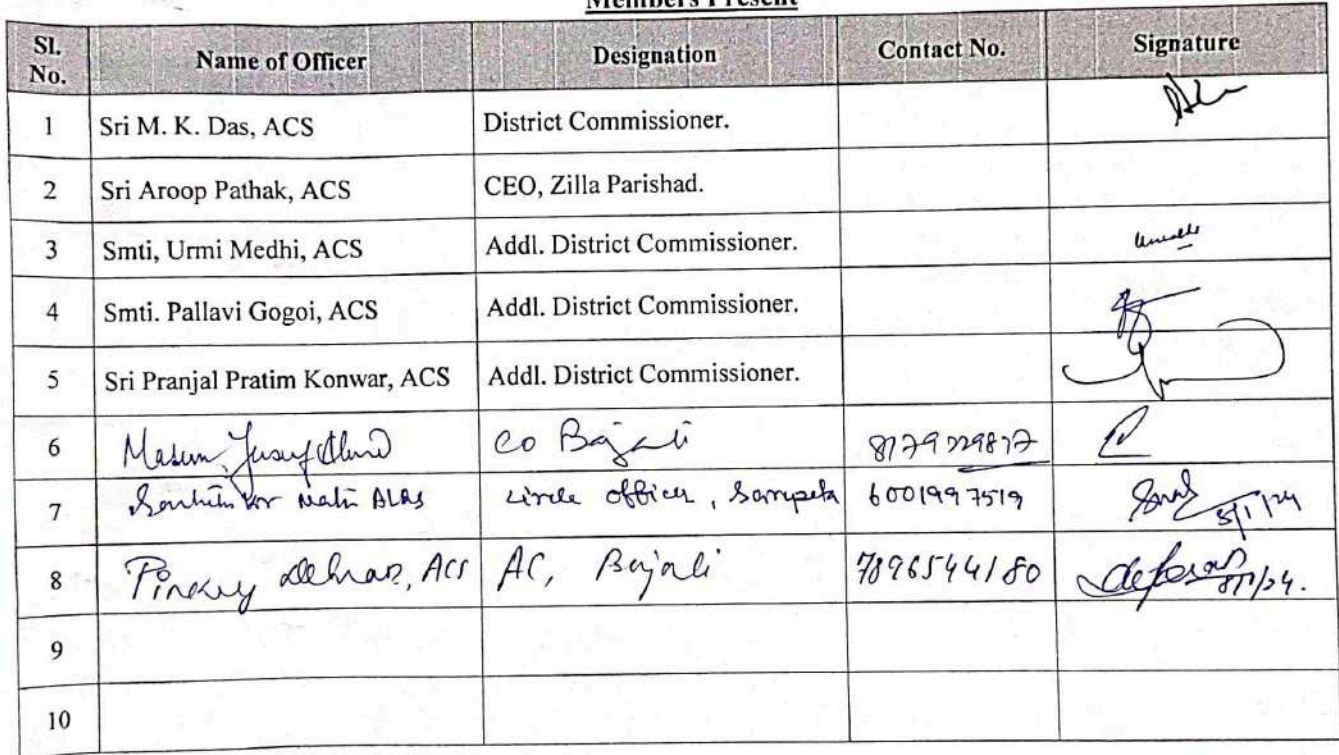 Members Present
Sl. No. Name of Officer Designation Contact No. Signature
1 Sri M. K. Das, ACS District Commissioner.
2 Sri Aroop Pathak, ACS CEO, Zilla Parishad.
3 Smti, Urmi Medhi, ACS Addl. District Commissioner.
4 Smti. Pallavi Gogoi, ACS Addl. District Commissioner.
5 Sri Pranjal Pratim Konwar, ACS Addl. District Commissioner.
6 Masum Yusuf CO Bajali
7 Circle Officer, 6001997519
8 ACS AC, Bajali 7896544180
9
10